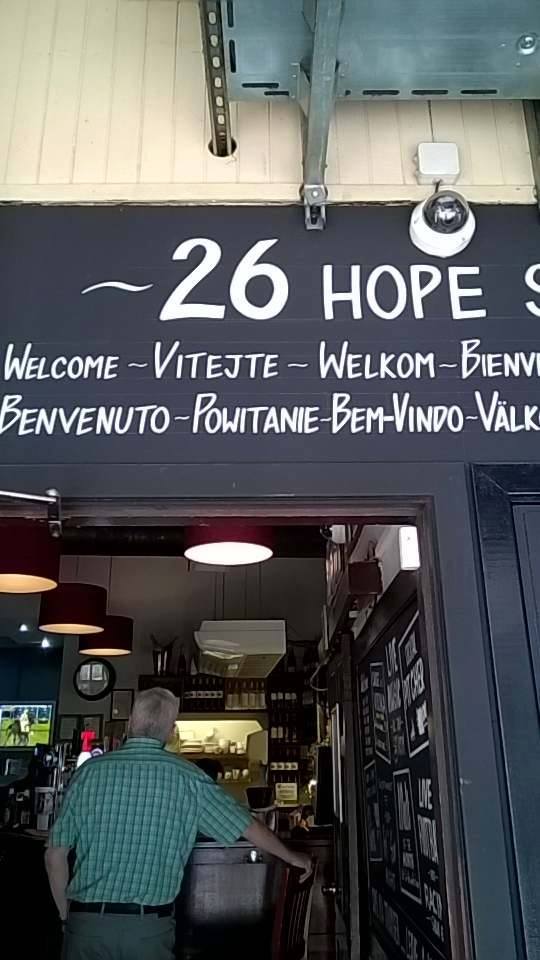 ~26 HOPE S
WELCOME ~ VITEJTE ~ WELKOM ~ BIENV
BENVENUTO ~ POWITANIE ~ BEM-VINDO ~ VÄLK
LIVE
LIVE